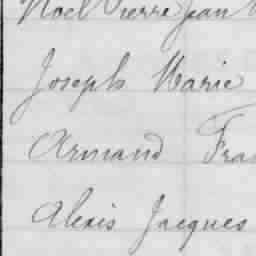 Noel Pierre Jean
Joseph Marie
Armand Fra
Alexis Jacques